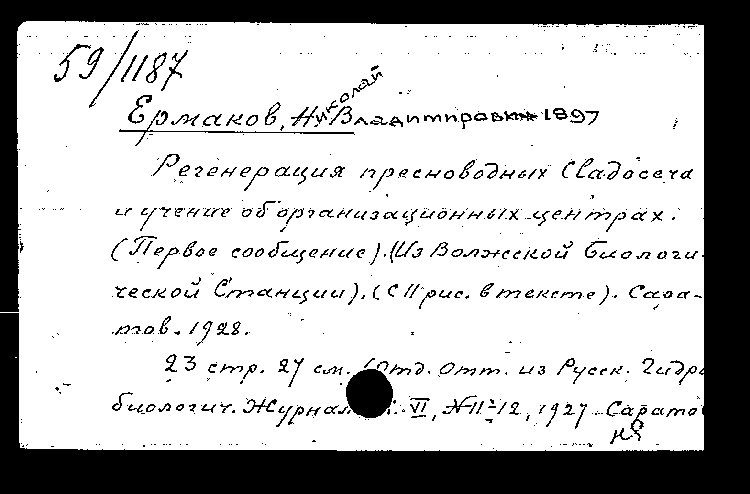 59/1187
Ермаков, Николай Владимирович 1897
Регенерация пресноводных Cladocera
и учение об организационных центрах.
(Первое сообщение). (Из Волжской биологи-
ческой Станции). (С 11 рис. в тексте). Сара-
тов. 1928.
23 стр. 27 см. (Отд. отт. из Русск. Гидро
биологич. Журнал VI, № 11-12, 1927 Сарато